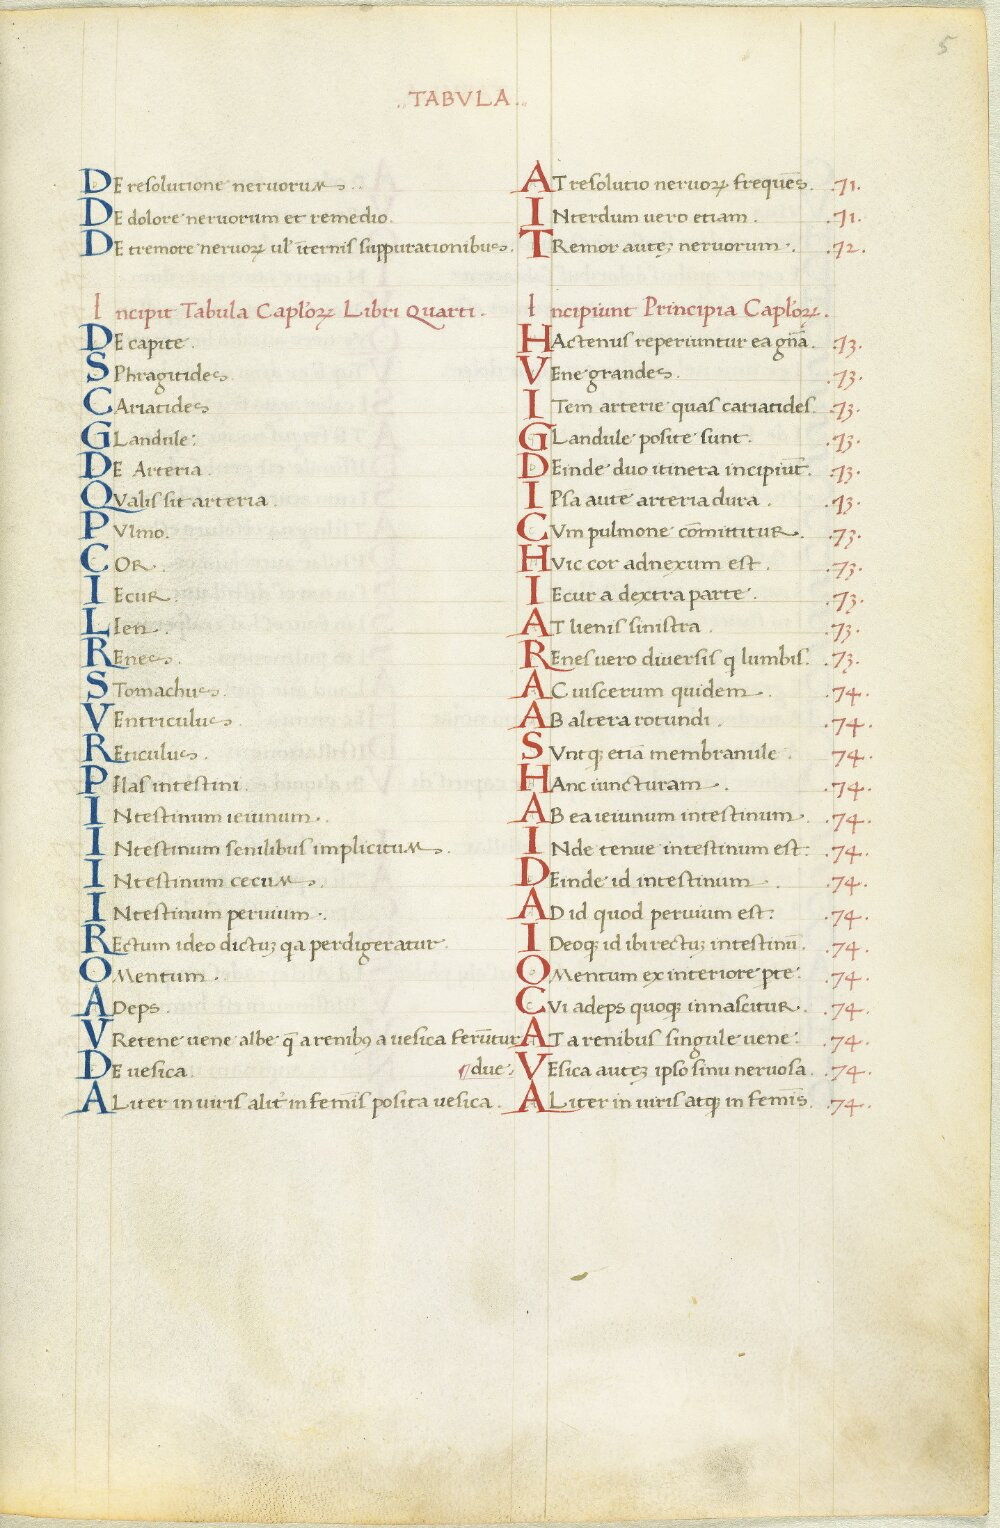 5
..TABVLA..
DE resolutione neruorum. AT resolutio neruoꝝ frequēs. .71.
DE dolore neruorum et remedio. INterdum uero etiam. .71.
DE tremore neruoꝝ ul' īternis suppurationibus. TRemor auteꝫ neruorum. .72.
Incipit Tabula Capl'oꝝ Libri Quarti. Incipiunt Principia Capl'oꝝ.
DE capite. HActenus reperiuntur ea gn̄a. .73.
SPhragitides. VEne grandes. .73.
CAriatides ITem arterie quas cariatides. .73.
GLandule: GLandule posite sunt. .73.
DE Arteria DEinde duo itinera incipiūt. .73.
QValis sit arteria. IPsa aute arteria dura. .73.
PVlmo. CVm pulmone cōmittitur. .73.
COR. HVic cor adnexum est. .73.
IEcur. IEcur a dextra parte. .73.
LIen. AT lienis sinistra. .73.
REnes. REnes uero diuersis q lumbis. .73.
STomachus. AC uiscerum quidem. .74.
VEntriculus. AB altera rotundi. .74.
REticulus. SVntqꝫ etiā membranule. .74.
PIlas intestini. HAnc iuncturam. .74.
INtestinum ieiunum. AB ea ieiunum intestinum. .74.
INtestinum senilibus implicitum. INde tenue intestinum est: .74.
INtestinum cecum. DEinde id intestinum. .74.
INtestinum peruium. AD id quod peruium est: .74.
REctum ideo dictuꝫ qa perdigeratur. IDeoqꝫ id ibi rectuꝫ intestinū. .74.
OMentum. OMentum ex interiore pte: .74.
ADeps. CVi adeps quoqꝫ innascitur. .74.
VRetene uene albe q̄ a renibꝯ a uesica ferūtur AT a renibus singule uene: .74.
DE uesica. due: VEsica auteꝫ ipso sinu neruosa. .74.
ALiter in uiris alit' in femīs posita uesica. ALiter in uiris atqꝫ in femīs. .74.